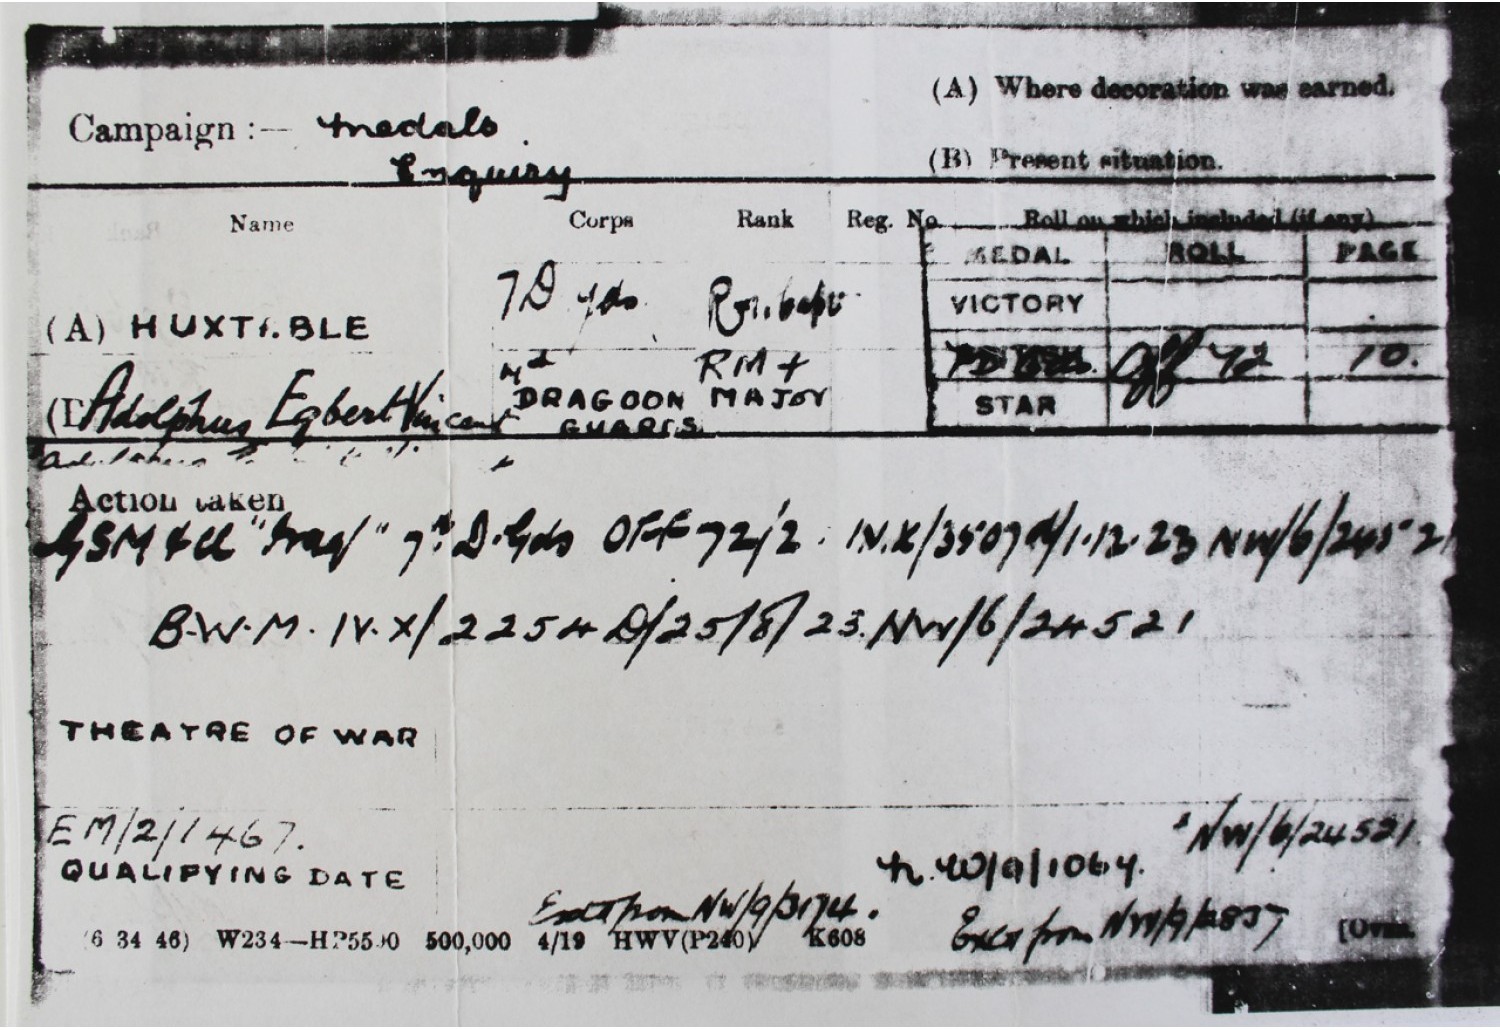 (A) Where decoration was earned.
Campaign :— medals
Enquiry
(B) Present situation.
Name Corps Rank Reg. No. Roll on which included (if any)
MEDAL ROLL PAGE
7 D Gds
VICTORY
(A) HUXTABLE
BRITISH Off 72 10.
RM &
Adolphus Egbert Vincent DRAGOON MAJOR
GUARDS
STAR
Action taken
GSM & Cl "Iraq" 7th D. Gds OFF 72/2 IV.X/3507 d/1.12.23 NW/6/24521
B.W.M. IV.X/2254 D/25/8/23. NW/6/24521
THEATRE OF WAR
EM/2/1467.
NW/6/24521
QUALIFYING DATE
N.W/9/1064.
from NW/9/3174.
from NW/9/2837
(6 34 46) W234—HP5590 500,000 4/19 HWV(P240) K608 [Over.